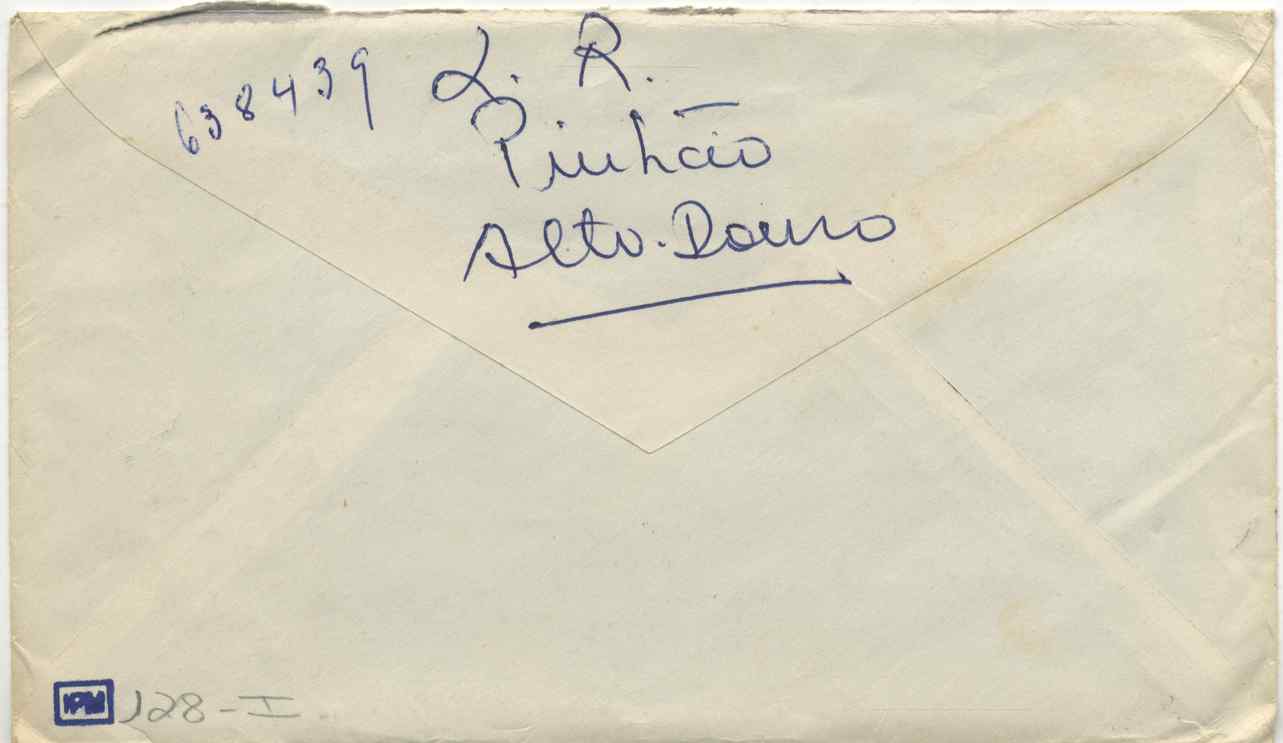 638439 L. R.
Pinhão
Alto-Douro
128-I